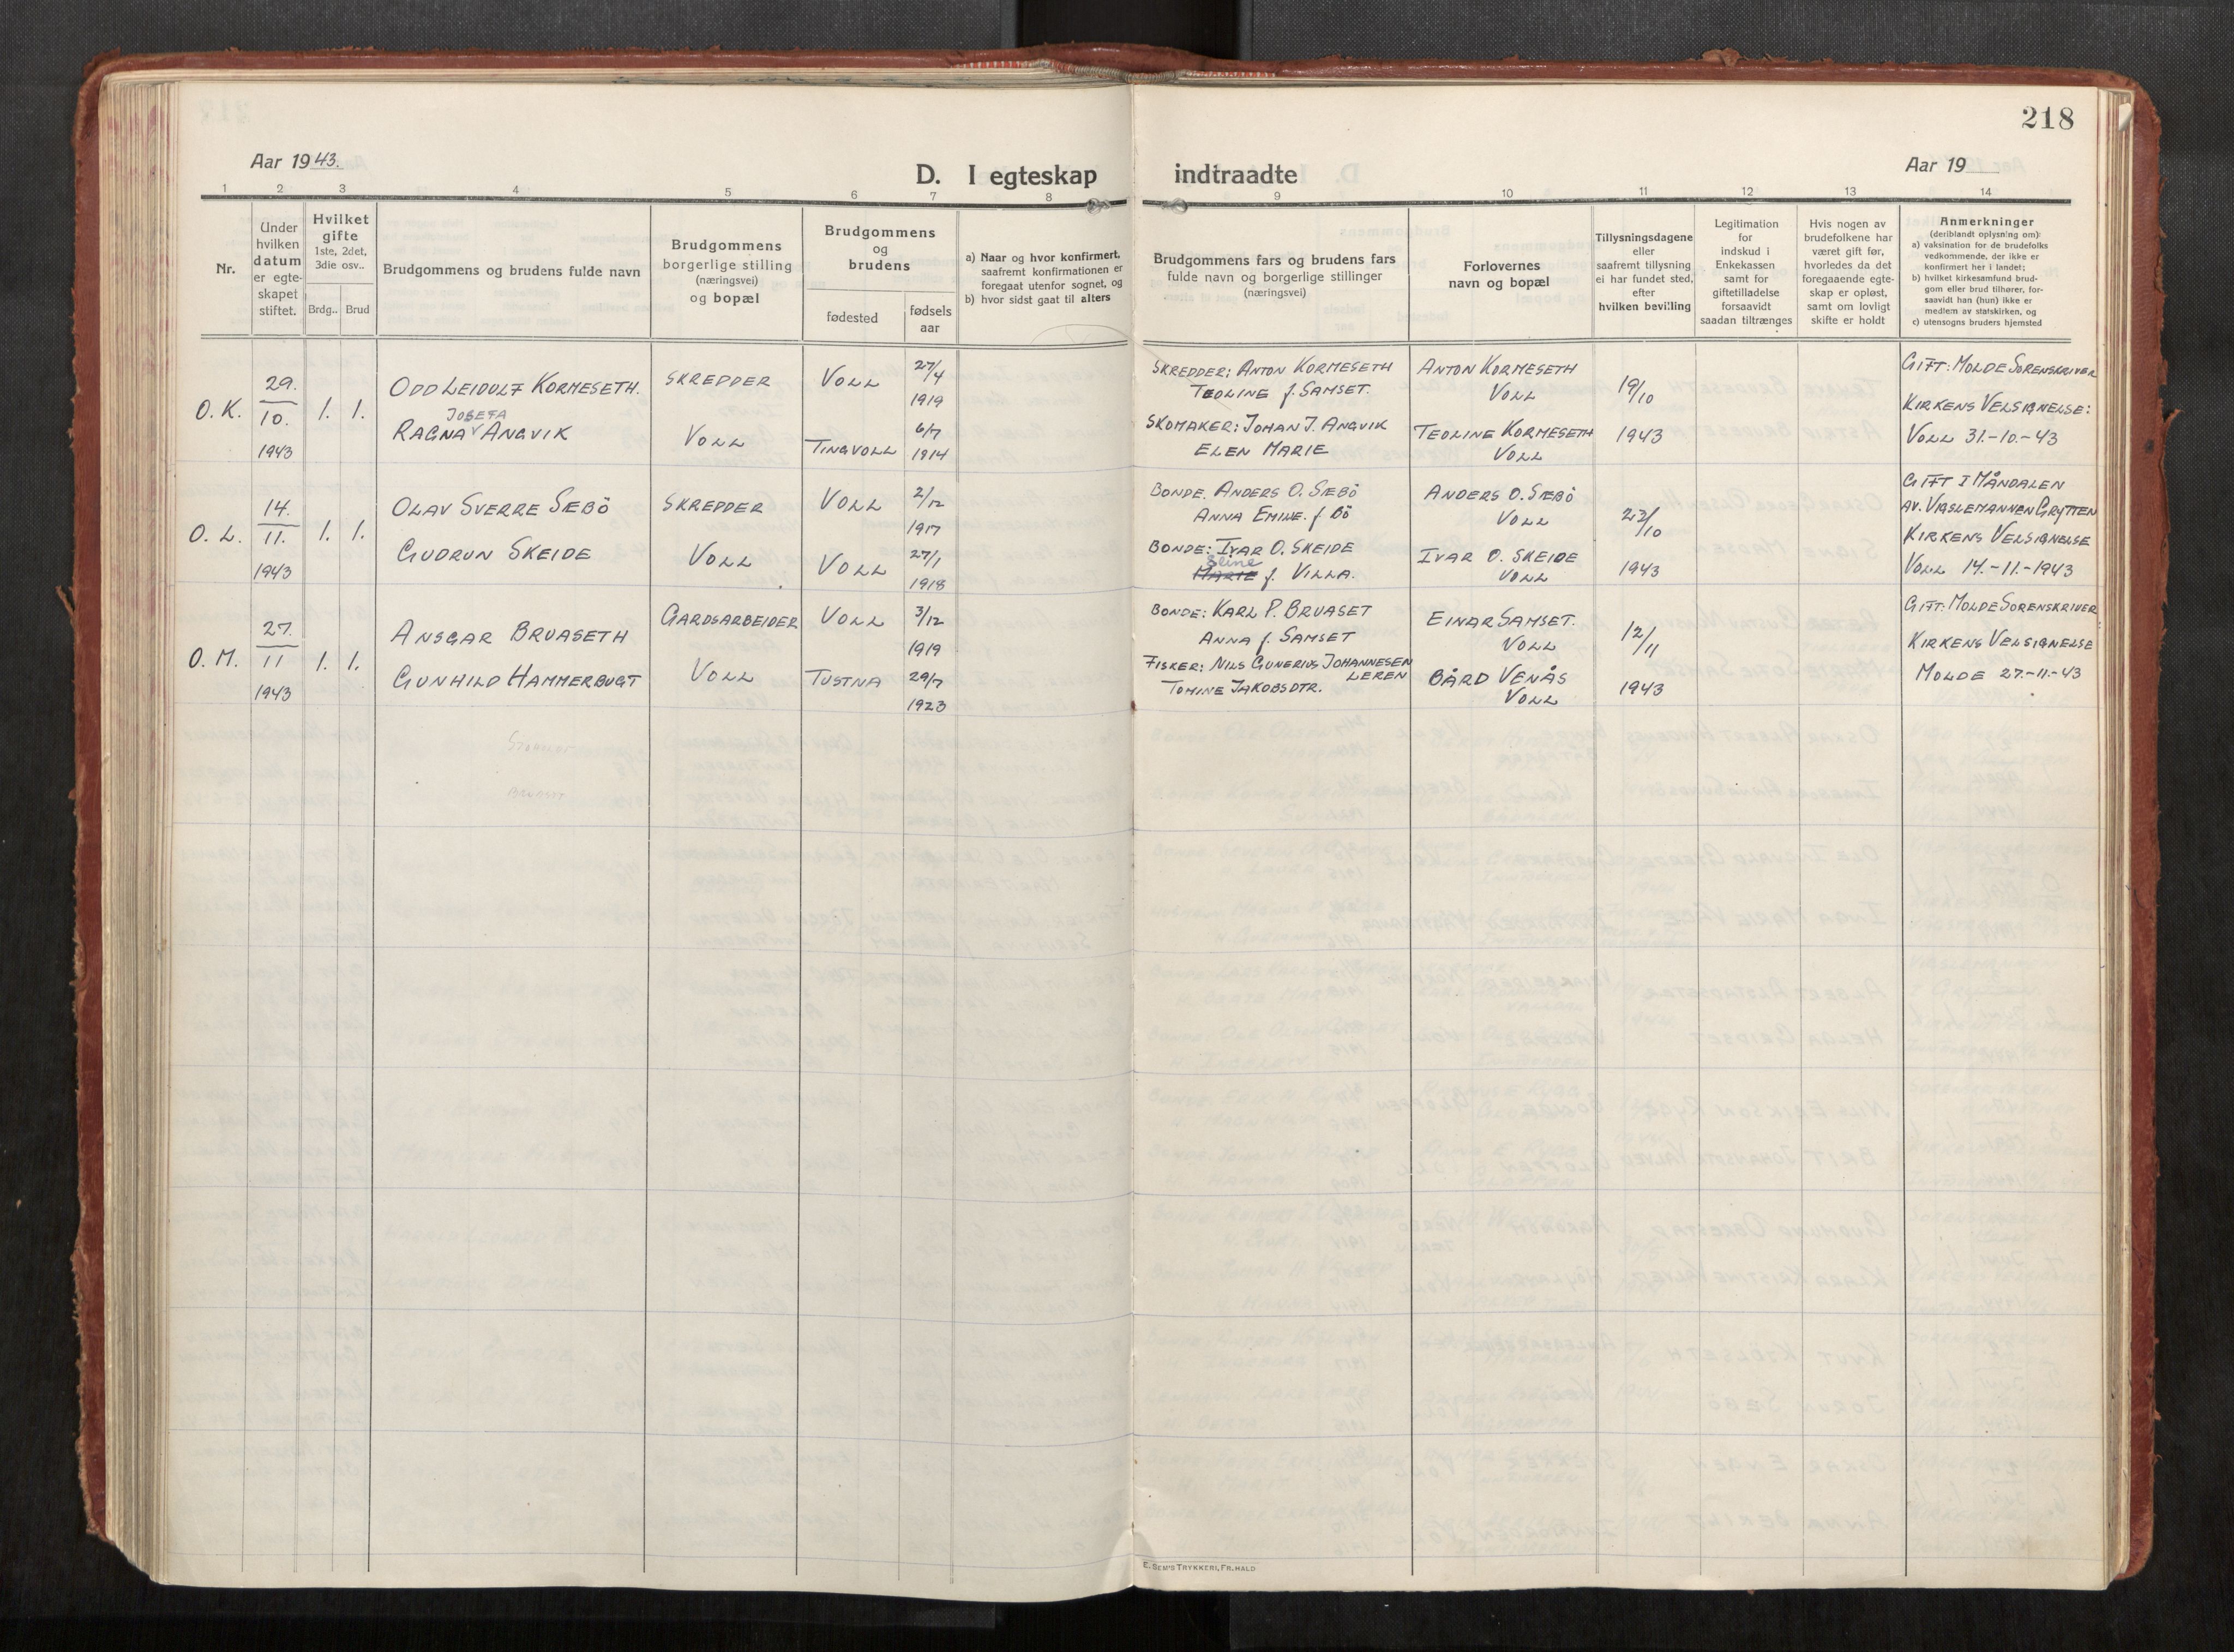 218
Aar 1943.
D. I egteskap indtraadte
Aar 19
1 2 3 4 5 6 7 8 9 10 11 12 13 14
Nr.
Under
hvilken
datum
er egte-
skapet
stiftet.
Hvilket
gifte
1ste, 2det,
3die osv..
Brdg.. Brud
Brudgommens og brudens fulde navn
Brudgommens
borgerlige stilling
(næringsvei)
og bopæl
Brudgommens
og
brudens
fødested
fødsels
aar
a) Naar og hvor konfirmert,
saafremt konfirmationen er
foregaat utenfor sognet, og
b) hvor sidst gaat til alters
Brudgommens fars og brudens fars
fulde navn og borgerlige stillinger
(næringsvei)
Forlovernes
navn og bopæl
Tillysningsdagene
eller
saafremt tillysning
ei har fundet sted,
efter
hvilken bevilling
Legitimation
for
indskud i
Enkekassen
samt for
giftetilladelse
forsaavidt
saadan tiltrænges
Hvis nogen av
brudefolkene har
været gift før,
hvorledes da det
foregaaende egte-
skap er opløst,
samt om lovligt
skifte er holdt
Anmerkninger
(deriblandt oplysning om):
a) vaksination for de brudefolks
vedkommende, der ikke er
konfirmert her i landet;
b) hvilket kirkesamfund brud-
gom eller brud tilhører, for-
saavidt han (hun) ikke er
medlem av statskirken, og
c) utensogns bruders hjemsted
O.K.
29.
10.
1943
1. 1.
ODD LEIDULF KORMESETH.
JOSEFA
RAGNA ANGVIK
SKREDDER
VOLL
VOLL
TINGVOLL
27/4
1919
6/7
1914
SKREDDER: ANTON KORMESETH
TEOLINE f. SAMSET.
SKOMAKER: JOHAN J. ANGVIK
ELEN MARIE
ANTON KORMESETH
VOLL
TEOLINE KORMESETH
VOLL
19/10
1943
GIFT: MOLDE SORENSKRIVER
KIRKENS VELSIGNELSE:
VOLL 31.-10.-43
O.L.
14.
11.
1943
1. 1.
OLAV SVERRE SÆBÖ
GUDRUN SKEIDE
SKREDDER
VOLL
VOLL
VOLL
2/12
1917
27/1
1918
BONDE. ANDERS O. SÆBÖ
ANNA EMILIE. f BÖ
BONDE: IVAR O. SKEIDE
Eline
MARIE f. VILLA.
ANDERS O. SÆBÖ
VOLL
IVAR O. SKEIDE
VOLL
23/10
1943
GIFT I MÅNDALEN
AV. VIGSLEMANNEN GRYTTEN
KIRKENS VELSIGNELSE
VOLL 14.-11.-1943
O.M.
27.
11
1943
1. 1.
ANSGAR BRUASETH
GUNHILD HAMMERBUGT
GARDSARBEIDER
VOLL
VOLL
TUSTNA
3/12
1919
29/7
1923
BONDE: KARL P. BRUASET
ANNA f. SAMSET
FISKER: NILS GUNERIUS JOHANNESEN
LEREN
TOMINE JAKOBSDTR.
EINAR SAMSET.
VOLL
BÅRD VENÅS
VOLL
12/11
1943
GIFT: MOLDE SORENSKRIVER
KIRKENS VELSIGNELSE
MOLDE 27.-11.-43
BRUASET
E. SEM'S TRYKKERI, FR.HALD